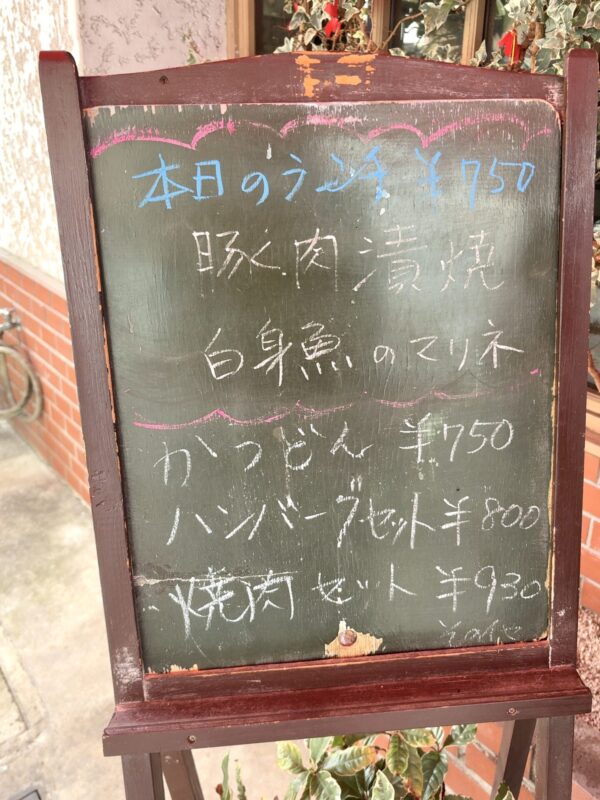 本日のランチ ¥750
豚肉漬焼
白身魚のマリネ
かつどん ¥750
ハンバーグセット ¥800
焼肉セット ¥930
その他